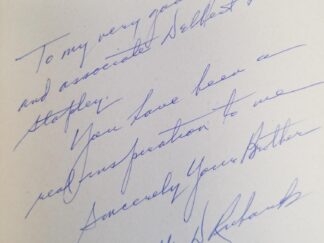 To my very good
and associate Delbert
Stapley.
You have been a
real inspiration to me
Sincerely Your Brother
D Richards